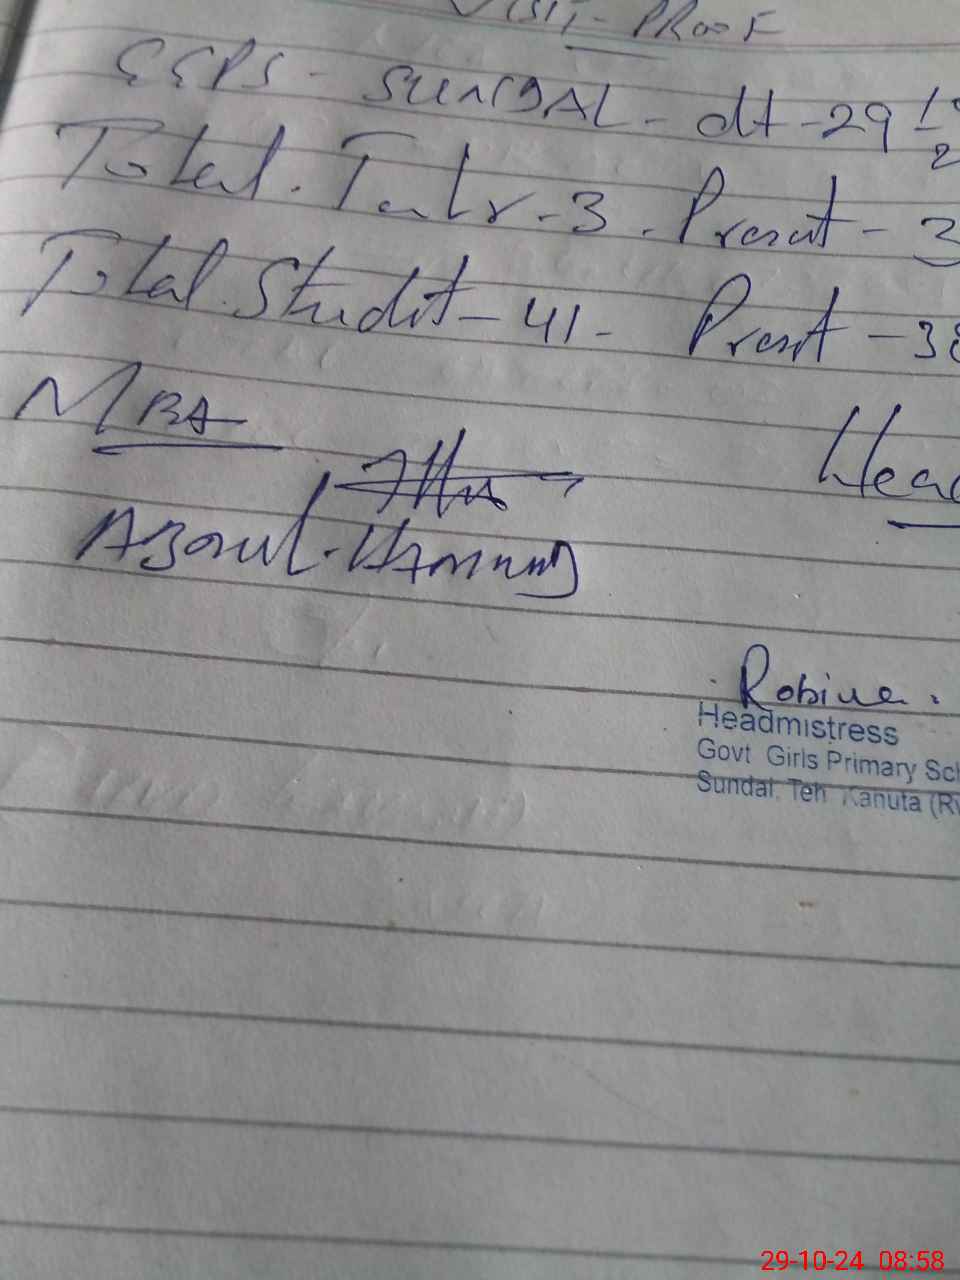 VISIT - PROOF
GGPS - SUNDAL - dt - 29
Total. - 3. Present - 3
Total. Studet - 41 - Presnt - 38
MBA
Head
Robina.
Headmistress
Govt Girls Primary Sch
Sundal. Teh Kahuta (Rw
29-10-24 08:58